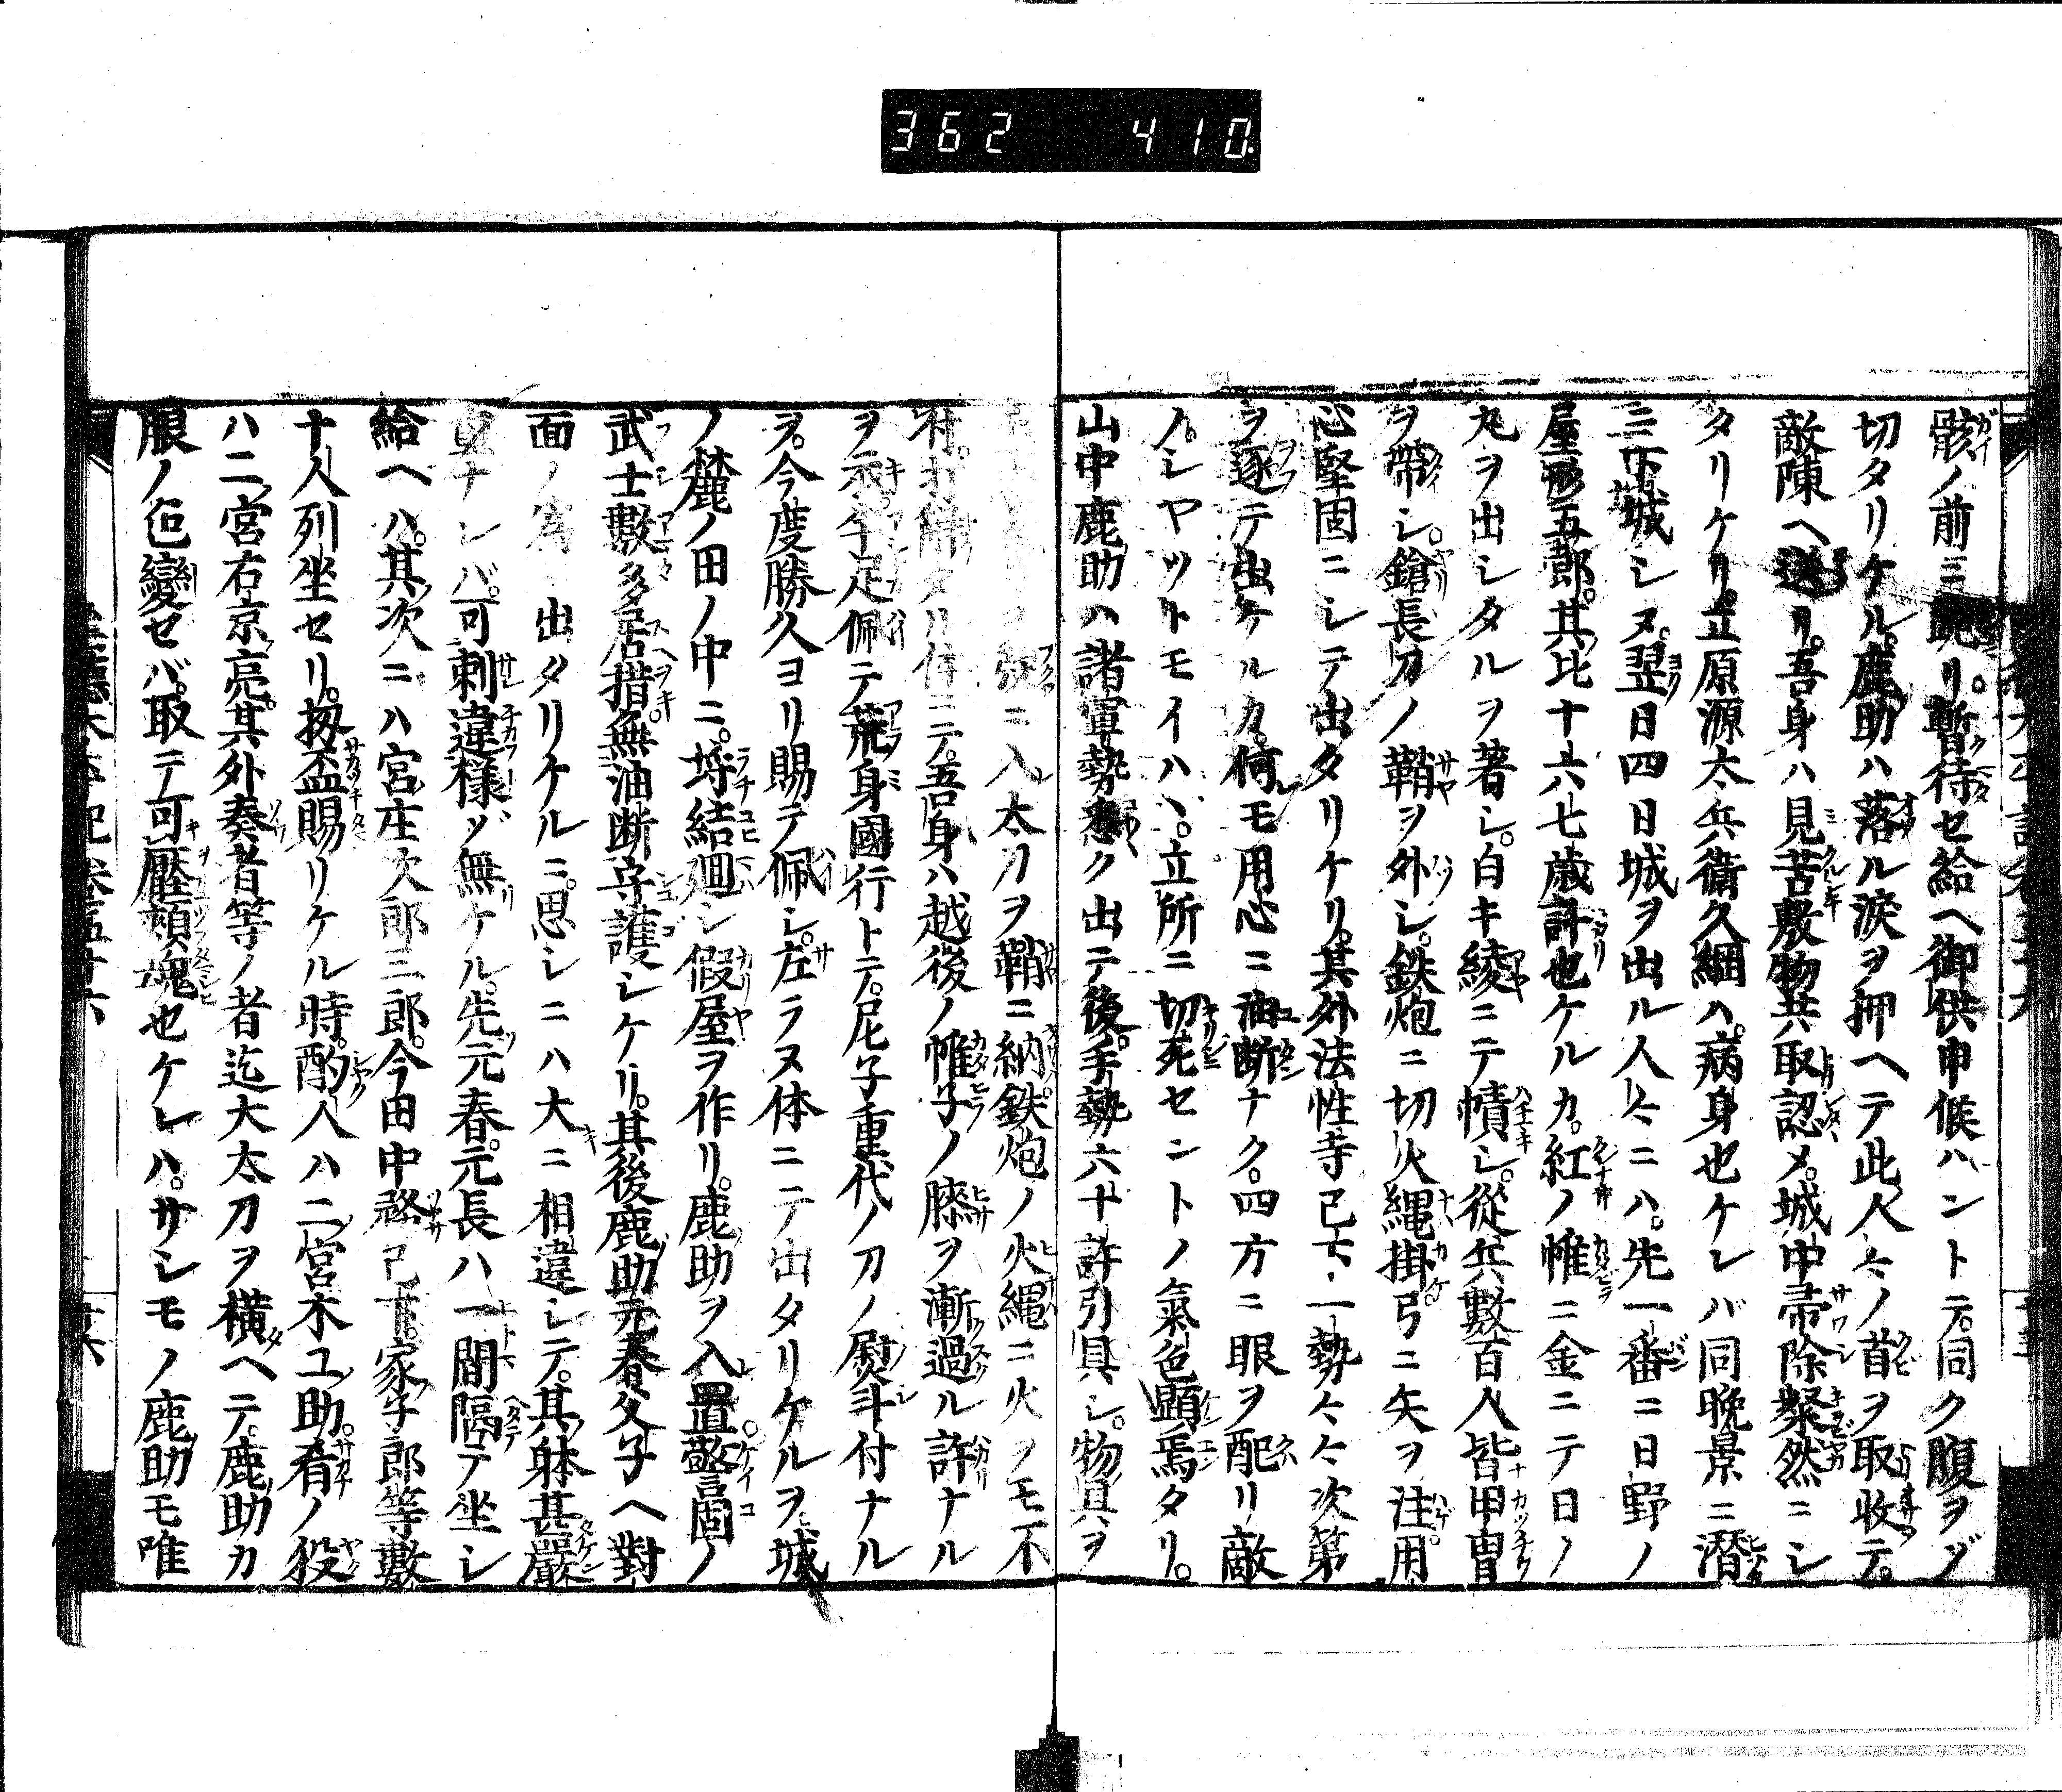 362 410
骸ノ前ニ跪リ。暫待セ給ヘ御供申候ハントテ。同ク腹ヲゾ
切タリケル。鹿助ハ落ル涙ヲ押ヘテ此人々ノ首ヲ取收テ。
敵陳ヘ送リ。吾身ハ見苦敷物共取認メ。城中帚除粲然ニシ
タリケリ。立原源太兵衞久綱ハ。病身也ケレバ同晩景ニ潛
ニ下城シヌ。翌日四日城ヲ出ル人々ニハ。先一番ニ日野ノ
屋形五郎。其比十六七歳許也ケルカ。紅ノ帷ニ金ニテ日ノ
丸ヲ出シタルヲ著シ。白キ綾ニテ幘シ。從兵數百人皆甲冑
ヲ帶シ。鎗長刀ノ鞘ヲ外シ。鉄炮ニ切火縄掛。弓ニ矢ヲ注。用
心堅固ニシテ出タリケリ。其外法性寺已下一勢々々次第
ヲ逐テ出ケルカ。何モ用心ニ油断ナク。四方ニ眼ヲ配リ敵
ノシヤツトモイハヽ。立所ニ切死セントノ氣色顕焉タリ。
山中鹿助ハ諸軍勢悉ク出テ後。手勢六十許引具シ。物具ヲ
ニ入太刀ヲ鞘ニ納鉄炮ノ火縄ニ火ヲモ不
付。打解タル体ニテ。吾身ハ越後ノ帷子ノ膝ヲ漸過ル許ナル
ヲ。半足佩テ荒身國行トテ。尼子重代ノ刀ノ熨斗付ナル
ヲ。今度勝久ヨリ賜テ佩シ。左ラヌ体ニテ出タリケルヲ。城
ノ麓ノ田ノ中ニ。埒結廻シ假屋ヲ作リ。鹿助ヲ入置警固ノ
武士數多居措。無油断守護シケリ。其後鹿助元春父子ヘ對
面ノ爲ニ出タリケルニ。思シニハ大ニ相違シテ。其躰甚嚴
重ナレバ。可刺違樣ゾ無ケル。先元春。元長ハ一間隔テ坐シ
給ヘハ。其次ニハ宮庄次郎三郎。今田中務已下。家子郎等數
十人列坐セリ。扨盃賜リケル時。酌人ハ二宮木工助。肴ノ役
ハ二宮右京亮。其外奏者等ノ者迄大太刀ヲ横ヘテ。鹿助カ
眼ノ色變セバ。取テ可壓頬魂也ケレハ。サシモノ鹿助モ唯